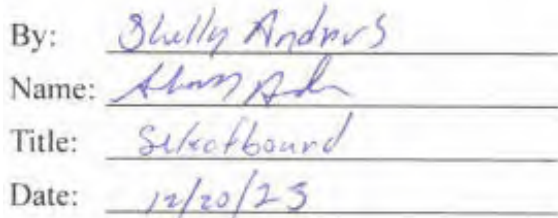 By: Shelly Andrews
Name:
Title: Selectboard
Date: 12/20/23